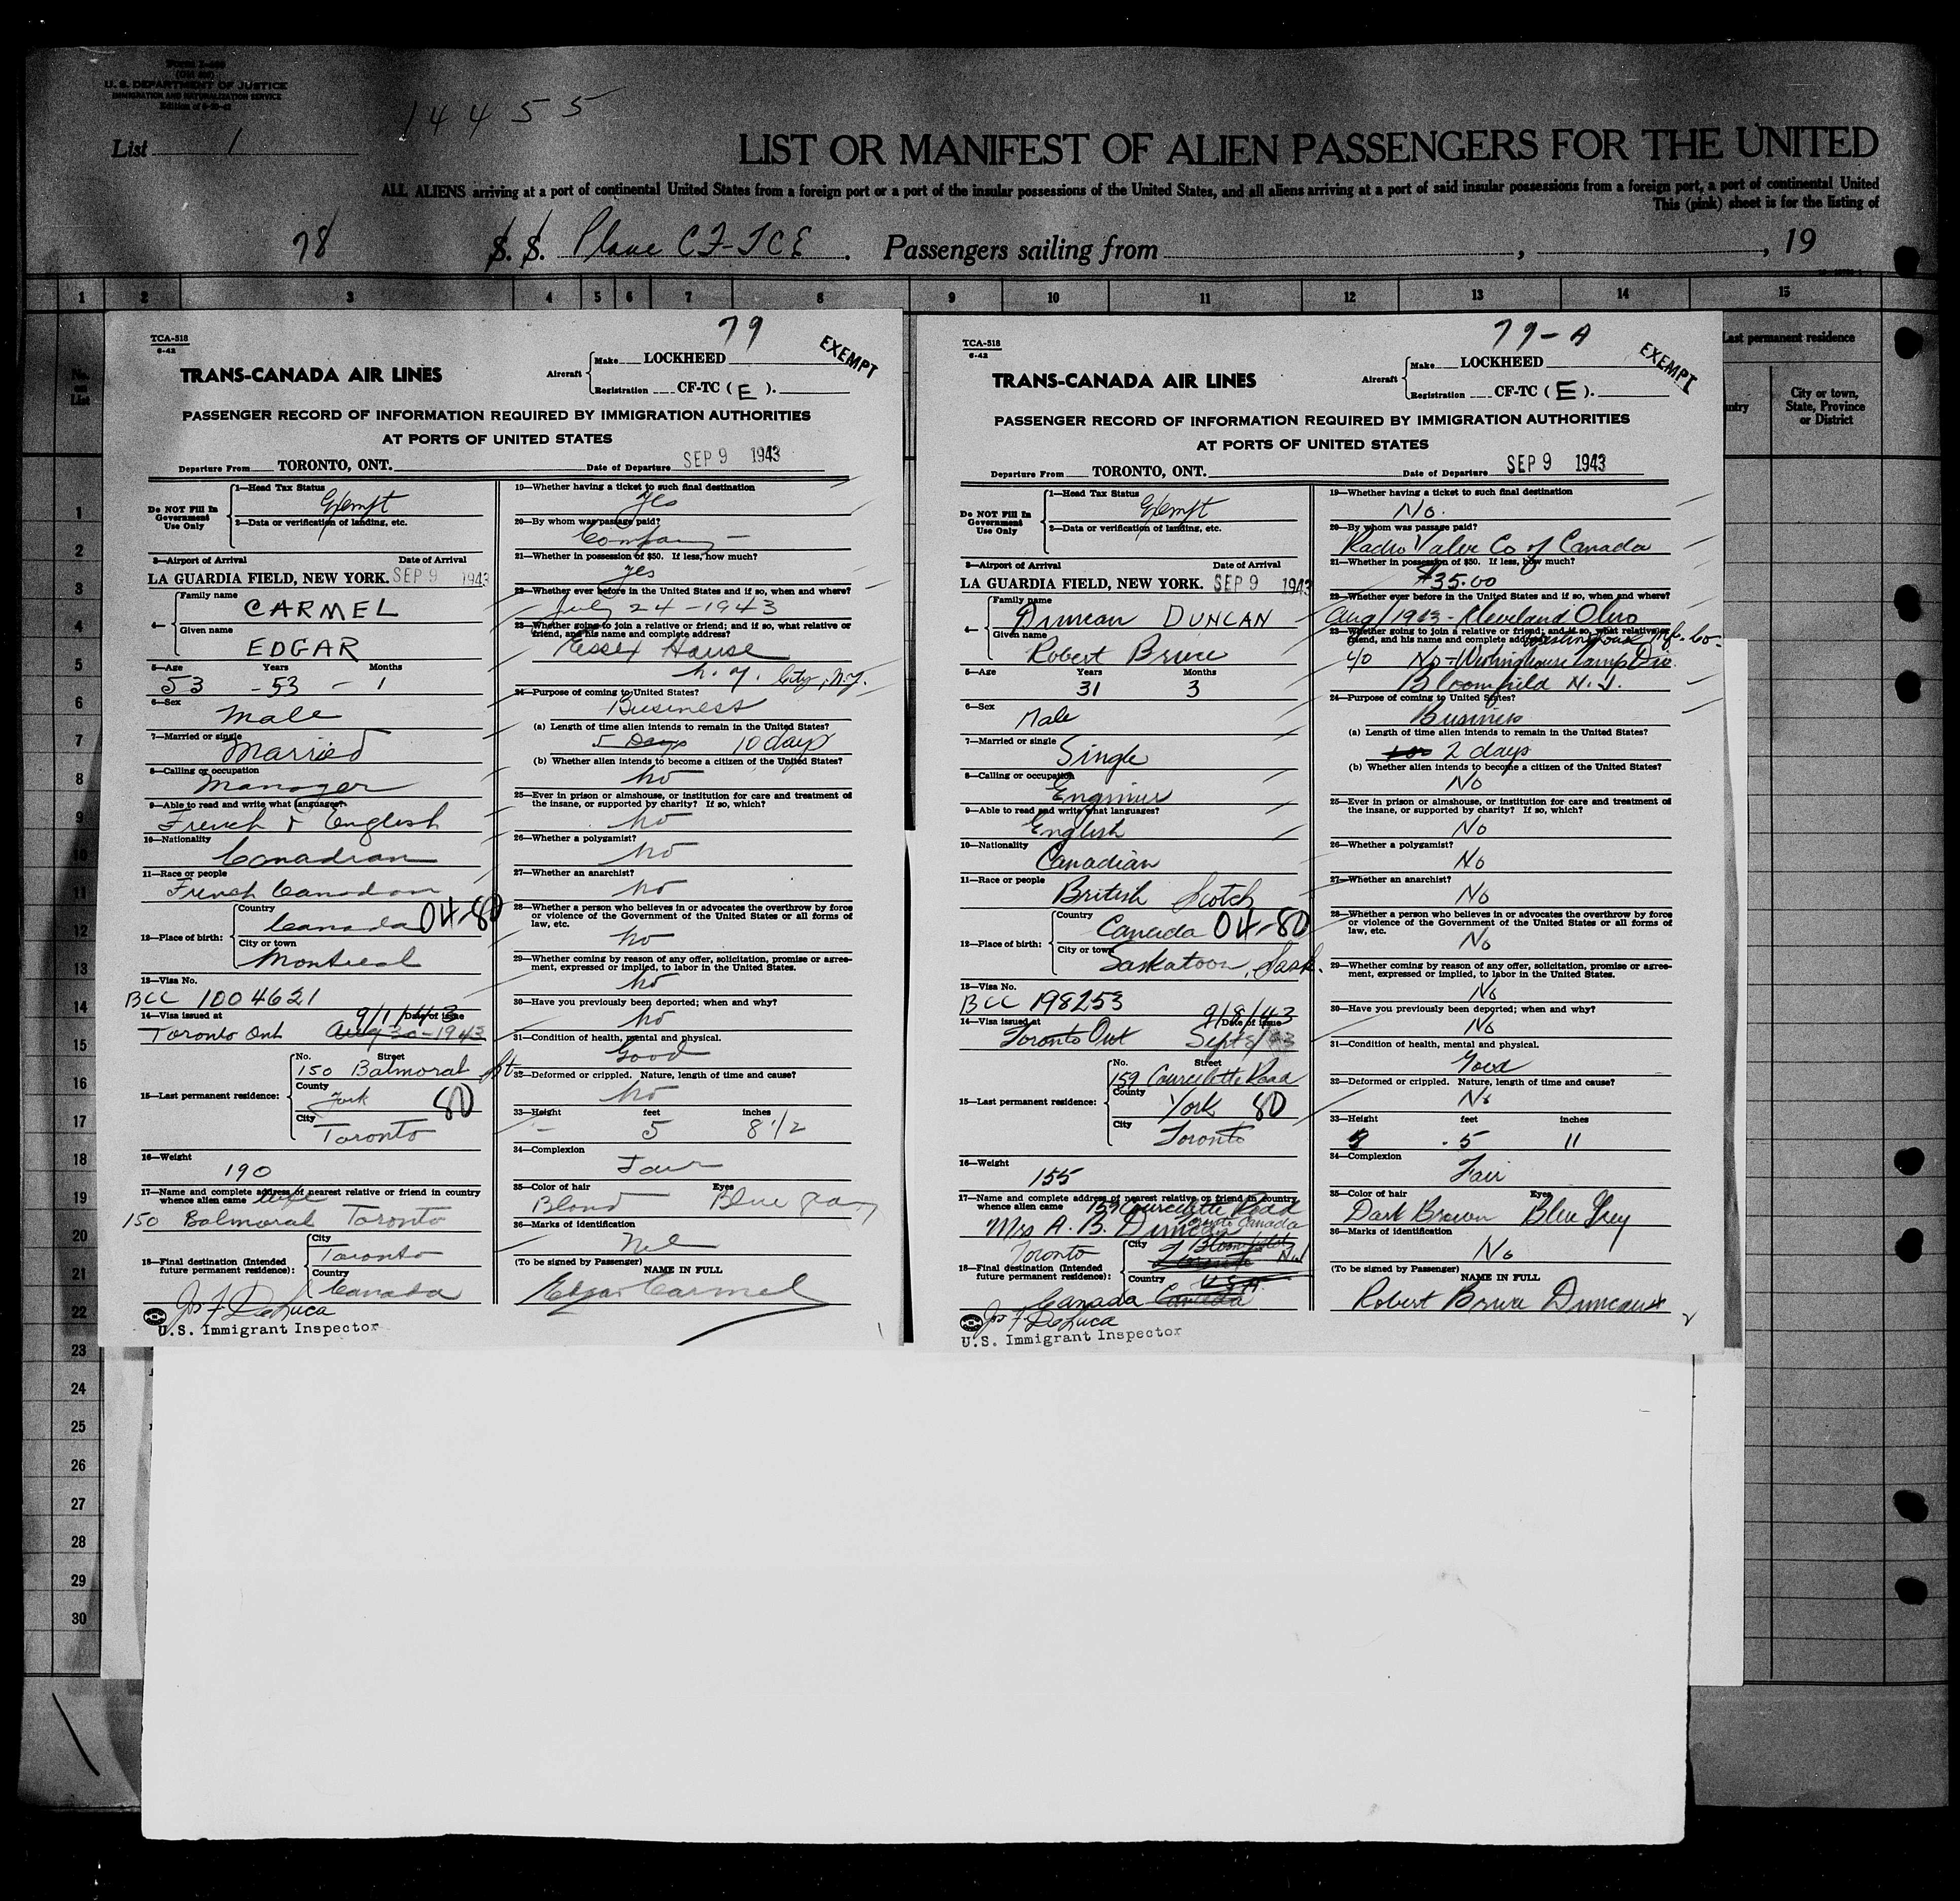 U. S. DEPARTMENT OF JUSTICE
IMMIGRATION AND NATURALIZATION SERVICE
14455
List 1
LIST OR MANIFEST OF ALIEN PASSENGERS FOR THE UNITED
ALL ALIENS arriving at a port of continental United States from a foreign port or a port of the insular possessions of the United States, and all aliens arriving at a port of said insular possessions from a foreign port, a port of continental United
This (pink) sheet is for the listing of
78 S. S. Plane CF-TCE. Passengers sailing from , , 19
1 2 3 4 5 6 7 8 9 10 11 12 13 14 15
No. on List
Last permanent residence
City or town, State, Province or District
1
2
3
4
5
6
7
8
9
10
11
12
13
14
15
16
17
18
19
20
21
22
23
24
25
26
27
28
29
30
79
TCA-518
6-42
EXEMPT
TRANS-CANADA AIR LINES
Aircraft Make LOCKHEED
Registration CF-TC ( E ).
PASSENGER RECORD OF INFORMATION REQUIRED BY IMMIGRATION AUTHORITIES
AT PORTS OF UNITED STATES
Departure From TORONTO, ONT. Date of Departure SEP 9 1943
Do NOT Fill In Government Use Only
1—Head Tax Status
Exempt
2—Data or verification of landing, etc.
3—Airport of Arrival Date of Arrival
LA GUARDIA FIELD, NEW YORK. SEP 9 1943
4— Family name
CARMEL
Given name
EDGAR
5—Age Years Months
53 - 53 - 1
6—Sex
Male
7—Married or single
Married
8—Calling or occupation
Manager
9—Able to read and write what languages?
French & English
10—Nationality
Canadian
11—Race or people
French Canadian
12—Place of birth: Country
Canada 04-80
City or town
Montreal
13—Visa No.
BCC 1004621
9/1/43
14—Visa issued at Date of issue
Toronto Ont Aug 30-1943
15—Last permanent residence: No. Street
150 Balmoral
County
York 80
City
Toronto
16—Weight
190
17—Name and complete address of nearest relative or friend in country
whence alien came wife
150 Balmoral Toronto
18—Final destination (Intended future permanent residence): City
Toronto
Country
Canada
Jos F. DeLuca
U.S. Immigrant Inspector
19—Whether having a ticket to such final destination
Yes
20—By whom was passage paid?
Company
21—Whether in possession of $50. If less, how much?
yes
22—Whether ever before in the United States and if so, when and where?
July 24-1943
23—Whether going to join a relative or friend; and if so, what relative or
friend, and his name and complete address?
Essex House
N. Y. City, N.Y.
24—Purpose of coming to United States?
Business
(a) Length of time alien intends to remain in the United States?
5 Days 10 days
(b) Whether alien intends to become a citizen of the United States?
No
25—Ever in prison or almshouse, or institution for care and treatment of
the insane, or supported by charity? If so, which?
No
26—Whether a polygamist?
No
27—Whether an anarchist?
No
28—Whether a person who believes in or advocates the overthrow by force
or violence of the Government of the United States or all forms of
law, etc.
No
29—Whether coming by reason of any offer, solicitation, promise or agree-
ment, expressed or implied, to labor in the United States.
No
30—Have you previously been deported; when and why?
No
31—Condition of health, mental and physical.
Good
32—Deformed or crippled. Nature, length of time and cause?
No
33—Height feet inches
5 8 1/2
34—Complexion
Fair
35—Color of hair Eyes
Blond Blue gray
36—Marks of identification
Nil
(To be signed by Passenger) NAME IN FULL
Edgar Carmel
79-A
TCA-518
6-42
EXEMPT
TRANS-CANADA AIR LINES
Aircraft Make LOCKHEED
Registration CF-TC ( E ).
PASSENGER RECORD OF INFORMATION REQUIRED BY IMMIGRATION AUTHORITIES
AT PORTS OF UNITED STATES
Departure From TORONTO, ONT. Date of Departure SEP 9 1943
Do NOT Fill In Government Use Only
1—Head Tax Status
Exempt
2—Data or verification of landing, etc.
3—Airport of Arrival Date of Arrival
LA GUARDIA FIELD, NEW YORK. SEP 9 1943
4— Family name
Duncan DUNCAN
Given name
Robert Bruce
5—Age Years Months
31 3
6—Sex
Male
7—Married or single
Single
8—Calling or occupation
Engineer
9—Able to read and write what languages?
English
10—Nationality
Canadian
11—Race or people
British Scotch
12—Place of birth: Country
Canada 04-80
City or town
Saskatoon, Sask.
13—Visa No.
BCC 198253
9/8/43
14—Visa issued at Date of issue
Toronto Ont Sept 8/43
15—Last permanent residence: No. Street
159 Courcelette Road
County
York 80
City
Toronto
16—Weight
155
17—Name and complete address of nearest relative or friend in country
whence alien came 159 Courcelette Road
Mrs A. B. Duncan Toronto Canada
18—Final destination (Intended future permanent residence): City
Toronto Bloomfield N.J.
Toronto
Country
U.S.A.
Canada Canada
Jos F. DeLuca
U.S. Immigrant Inspector
19—Whether having a ticket to such final destination
No.
20—By whom was passage paid?
Radio Valve Co of Canada
21—Whether in possession of $50. If less, how much?
$35.00
22—Whether ever before in the United States and if so, when and where?
Aug/1943 - Cleveland Ohio
23—Whether going to join a relative or friend; and if so, what relative or
friend, and his name and complete address? Westinghouse Mfg. Co.
c/o No - Westinghouse Lamp Div.
Bloomfield N. J.
24—Purpose of coming to United States?
Business
(a) Length of time alien intends to remain in the United States?
2 days
(b) Whether alien intends to become a citizen of the United States?
No
25—Ever in prison or almshouse, or institution for care and treatment of
the insane, or supported by charity? If so, which?
No
26—Whether a polygamist?
No
27—Whether an anarchist?
No
28—Whether a person who believes in or advocates the overthrow by force
or violence of the Government of the United States or all forms of
law, etc.
No
29—Whether coming by reason of any offer, solicitation, promise or agree-
ment, expressed or implied, to labor in the United States.
No
30—Have you previously been deported; when and why?
No
31—Condition of health, mental and physical.
Good
32—Deformed or crippled. Nature, length of time and cause?
No
33—Height feet inches
5 11
34—Complexion
Fair
35—Color of hair Eyes
Dark Brown Blue Grey
36—Marks of identification
No
(To be signed by Passenger) NAME IN FULL
Robert Bruce Duncan